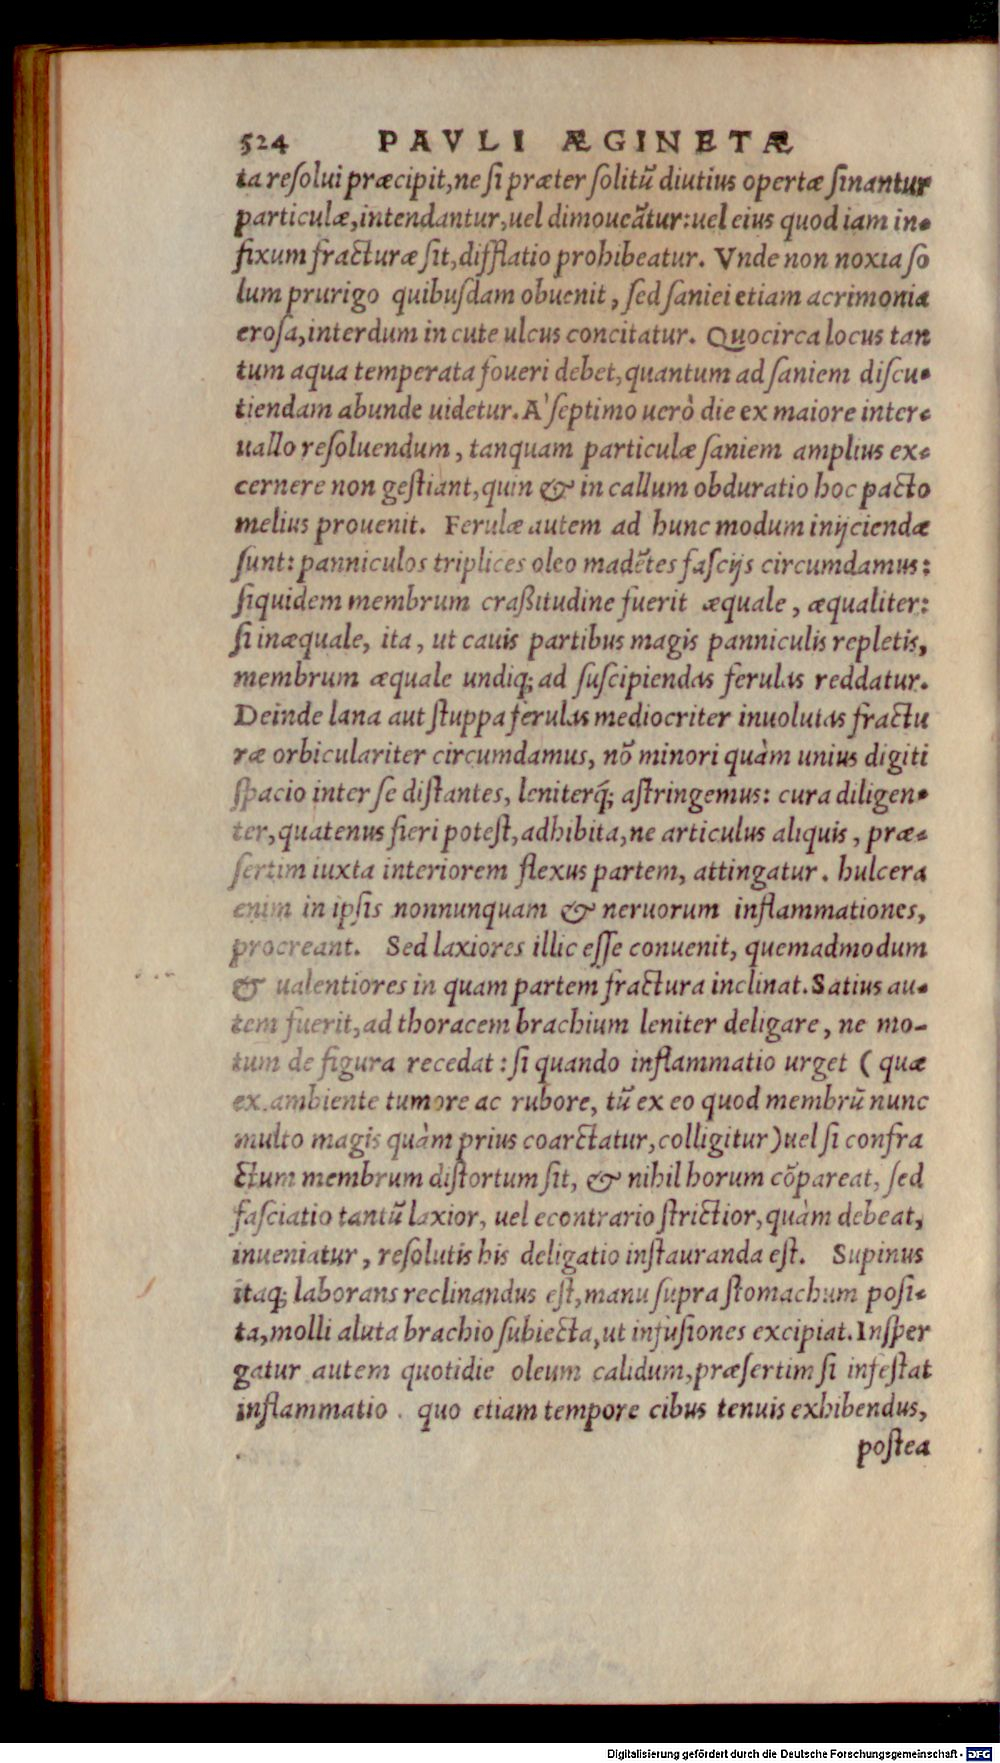 524 PAVLI ÆGINETÆ
ta resolui præcipit, ne si præter solitũ diutius opertæ sinantur
particulæ, intendantur, uel dimoueãtur: uel eius quod iam in-
fixum fracturæ sit, difflatio prohibeatur. Vnde non noxia so
lum prurigo quibusdam obuenit, sed saniei etiam acrimonia
erosa, interdum in cute ulcus concitatur. Quocirca locus tan
tum aqua temperata foueri debet, quantum ad saniem discu-
tiendam abunde uidetur. A' septimo uerò die ex maiore inter-
uallo resoluendum, tanquam particulæ saniem amplius ex-
cernere non gestiant, quin & in callum obduratio hoc pacto
melius prouenit. Ferulæ autem ad hunc modum inijciendæ
sunt: panniculos triplices oleo madẽtes fascijs circumdamus:
siquidem membrum craßitudine fuerit æquale, æqualiter:
si inæquale, ita, ut cauis partibus magis panniculis repletis,
membrum æquale undiq; ad suscipiendas ferulas reddatur.
Deinde lana aut stuppa ferulas mediocriter inuolutas fractu
ræ orbiculariter circumdamus, nõ minori quàm unius digiti
spacio inter se distantes, leniterq́; astringemus: cura diligen-
ter, quatenus fieri potest, adhibita, ne articulus aliquis, præ-
sertim iuxta interiorem flexus partem, attingatur. hulcera
enim in ipsis nonnunquam & neruorum inflammationes,
procreant. Sed laxiores illic esse conuenit, quemadmodum
& ualentiores in quam partem fractura inclinat. Satius au-
tem fuerit, ad thoracem brachium leniter deligare, ne mo-
tum de figura recedat: si quando inflammatio urget ( quæ
ex ambiente tumore ac rubore, tũ ex eo quod membrũ nunc
multo magis quàm prius coarctatur, colligitur) uel si confra
ctum membrum distortum sit, & nihil horum cõpareat, sed
fasciatio tantũ laxior, uel econtrario strictior, quàm debeat,
inueniatur, resolutis his deligatio instauranda est. Supinus
itaq; laborans reclinandus est, manu supra stomachum posi-
ta, molli aluta brachio subiecta, ut infusiones excipiat. Insper
gatur autem quotidie oleum calidum, præsertim si infestat
inflammatio. quo etiam tempore cibus tenuis exhibendus,
postea
Digitalisierung gefördert durch die Deutsche Forschungsgemeinschaft - DFG